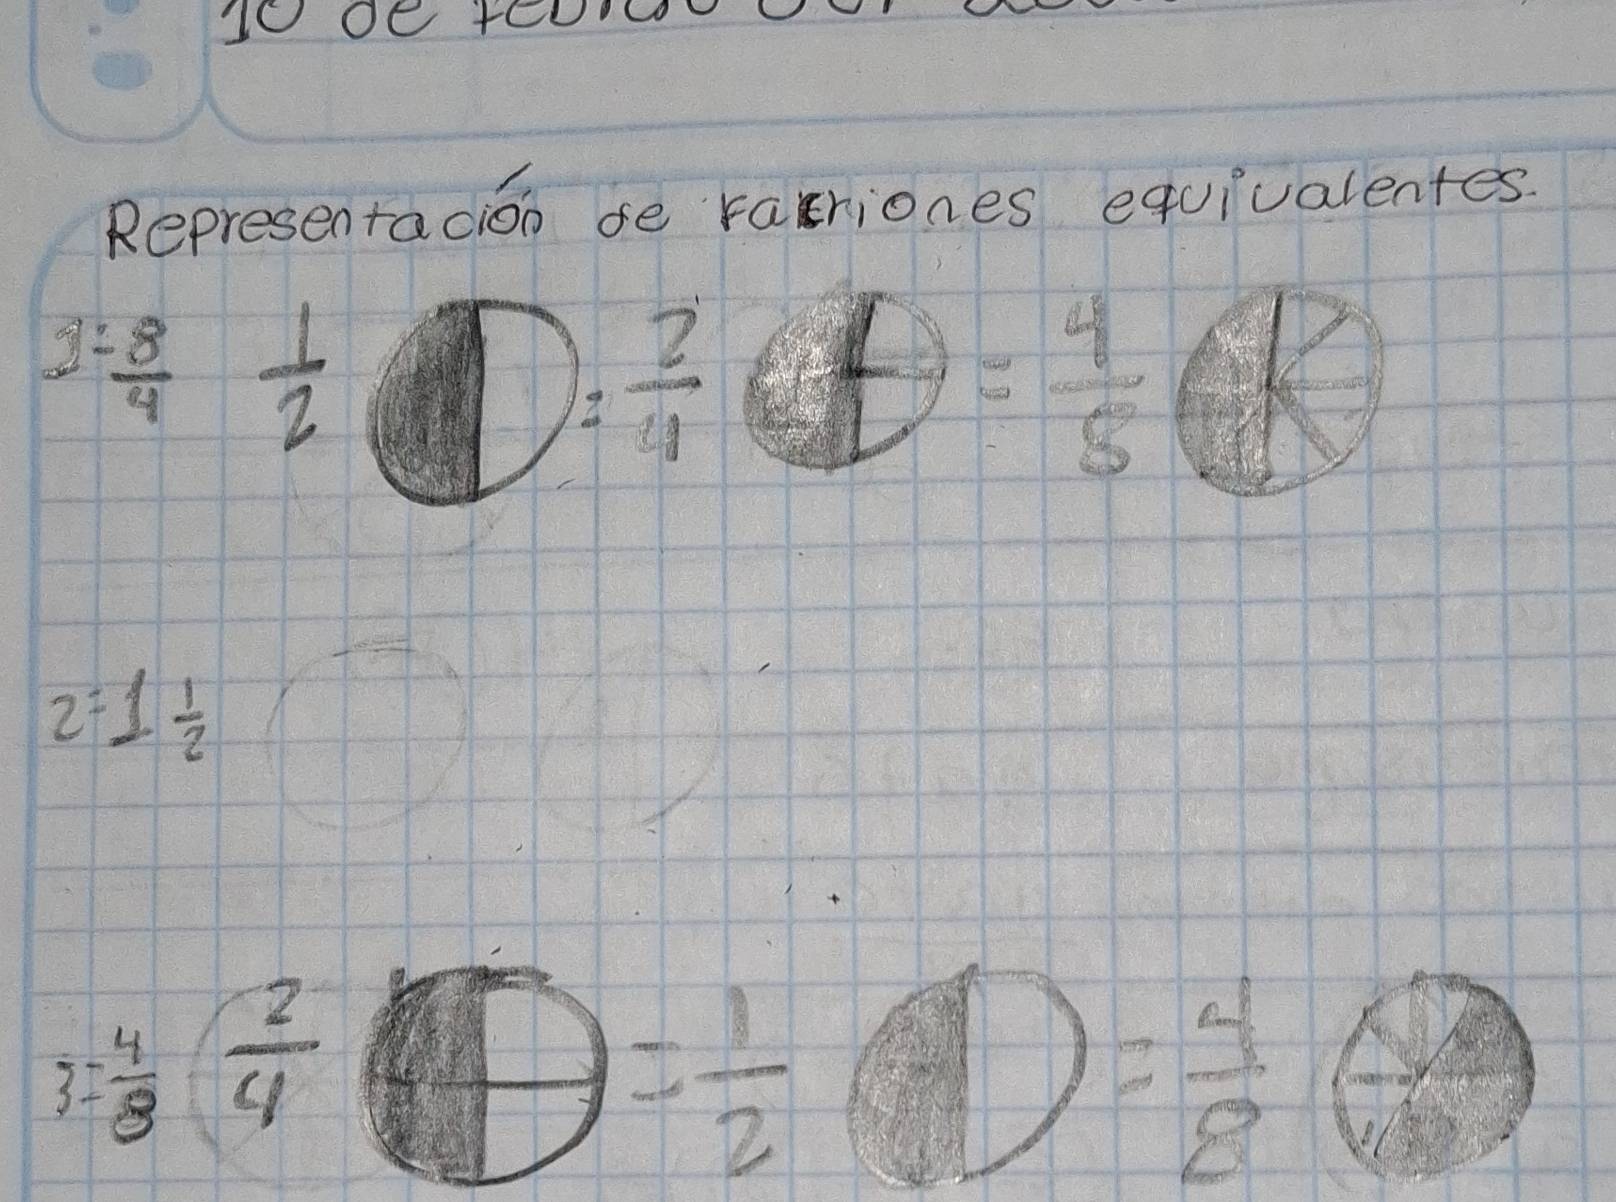 10 de
Representación de racriones equivalentes.
1=8/4 1/2 = 2/4 = 4/8
2=1 1/2
3=4/8 2/4 = 1/2 = 4/8